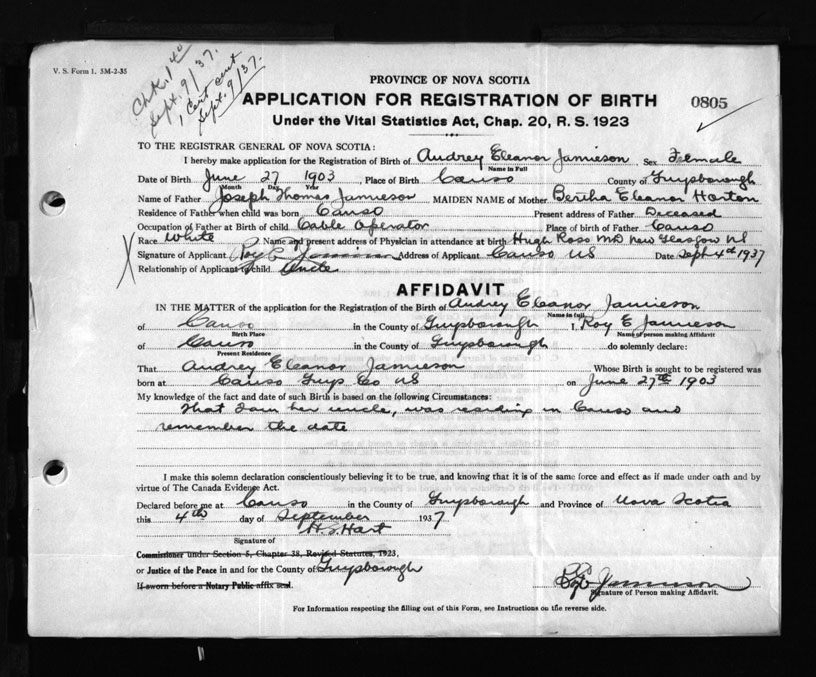 V. S. Form 1. 5M-2-35
Chk. 1 40
Sept. 9/37.
1 Cert sent
Sept. 9/37.
PROVINCE OF NOVA SCOTIA
APPLICATION FOR REGISTRATION OF BIRTH
0805
Under the Vital Statistics Act, Chap. 20, R. S. 1923
TO THE REGISTRAR GENERAL OF NOVA SCOTIA:
I hereby make application for the Registration of Birth of Audrey Eleanor Jamieson, Sex Female
Name in Full
Date of Birth June 27 1903, Place of Birth Canso County of Guysborough
Month Day Year
Name of Father Joseph Thomas Jamieson MAIDEN NAME of Mother Bertha Eleanor Horton
Residence of Father when child was born Canso Present address of Father Deceased
Occupation of Father at Birth of child Cable Operator Place of birth of Father Canso
Race White Name and present address of Physician in attendance at birth Hugh Ross MD New Glasgow NS
Signature of Applicant Roy E Jamieson Address of Applicant Canso NS Date Sept 4th 1937
Relationship of Applicant to child Uncle
AFFIDAVIT
IN THE MATTER of the application for the Registration of the Birth of Audrey Eleanor Jamieson
Name in full
of Canso in the County of Guysborough I, Roy E Jamieson
Birth Place Name of person making Affidavit
of Canso in the County of Guysborough do solemnly declare:
Present Residence
That Audrey Eleanor Jamieson Whose Birth is sought to be registered was
born at Canso Guys Co NS on June 27th 1903
My knowledge of the fact and date of such Birth is based on the following Circumstances:
That I am her uncle, was residing in Canso and
remember the date
I make this solemn declaration conscientiously believing it to be true, and knowing that it is of the same force and effect as if made under oath and by
virtue of The Canada Evidence Act.
Declared before me at Canso in the County of Guysborough and Province of Nova Scotia
this 4th day of September 1937
H. S. Hart
Signature of
Commissioner under Section 5, Chapter 38, Revised Statutes, 1923,
or Justice of the Peace in and for the County of Guysborough
If sworn before a Notary Public affix seal.
Roy E Jamieson
Signature of Person making Affidavit.
For Information respecting the filling out of this Form, see Instructions on the reverse side.